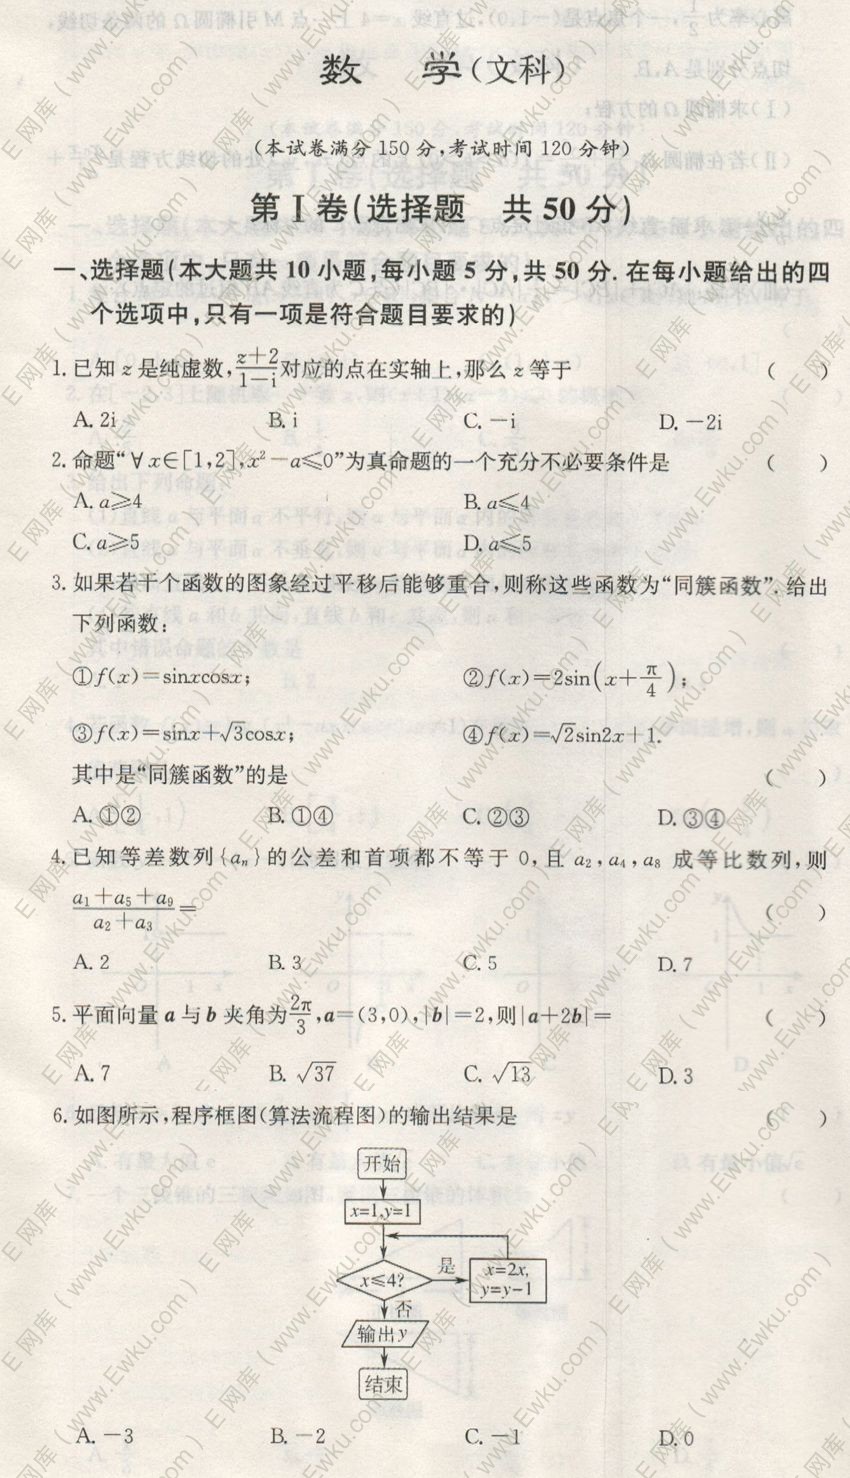 数 学(文科)
(本试卷满分 150 分,考试时间 120 分钟)
第 Ⅰ 卷(选择题 共 50 分)
一、选择题(本大题共 10 小题,每小题 5 分,共 50 分. 在每小题给出的四
个选项中,只有一项是符合题目要求的)
1. 已知 z 是纯虚数,(z+2)/(1-i)对应的点在实轴上,那么 z 等于 ( )
A. 2i B. i C. -i D. -2i
2. 命题“∀x∈[1,2],x²-a≤0”为真命题的一个充分不必要条件是 ( )
A. a≥4 B. a≤4
C. a≥5 D. a≤5
3. 如果若干个函数的图象经过平移后能够重合,则称这些函数为“同簇函数”. 给出
下列函数:
①f(x)=sinxcosx; ②f(x)=2sin(x+π/4);
③f(x)=sinx+√3cosx; ④f(x)=√2sin2x+1.
其中是“同簇函数”的是 ( )
A. ①② B. ①④ C. ②③ D. ③④
4. 已知等差数列{aₙ}的公差和首项都不等于 0,且 a₂,a₄,a₈ 成等比数列,则
(a₁+a₅+a₉)/(a₂+a₃)= ( )
A. 2 B. 3 C. 5 D. 7
5. 平面向量 a 与 b 夹角为2π/3,a=(3,0),|b|=2,则|a+2b|= ( )
A. 7 B. √37 C. √13 D. 3
6. 如图所示,程序框图(算法流程图)的输出结果是 ( )
开始
x=1,y=1
x≤4?
是
x=2x,
y=y-1
否
输出y
结束
A. -3 B. -2 C. -1 D. 0